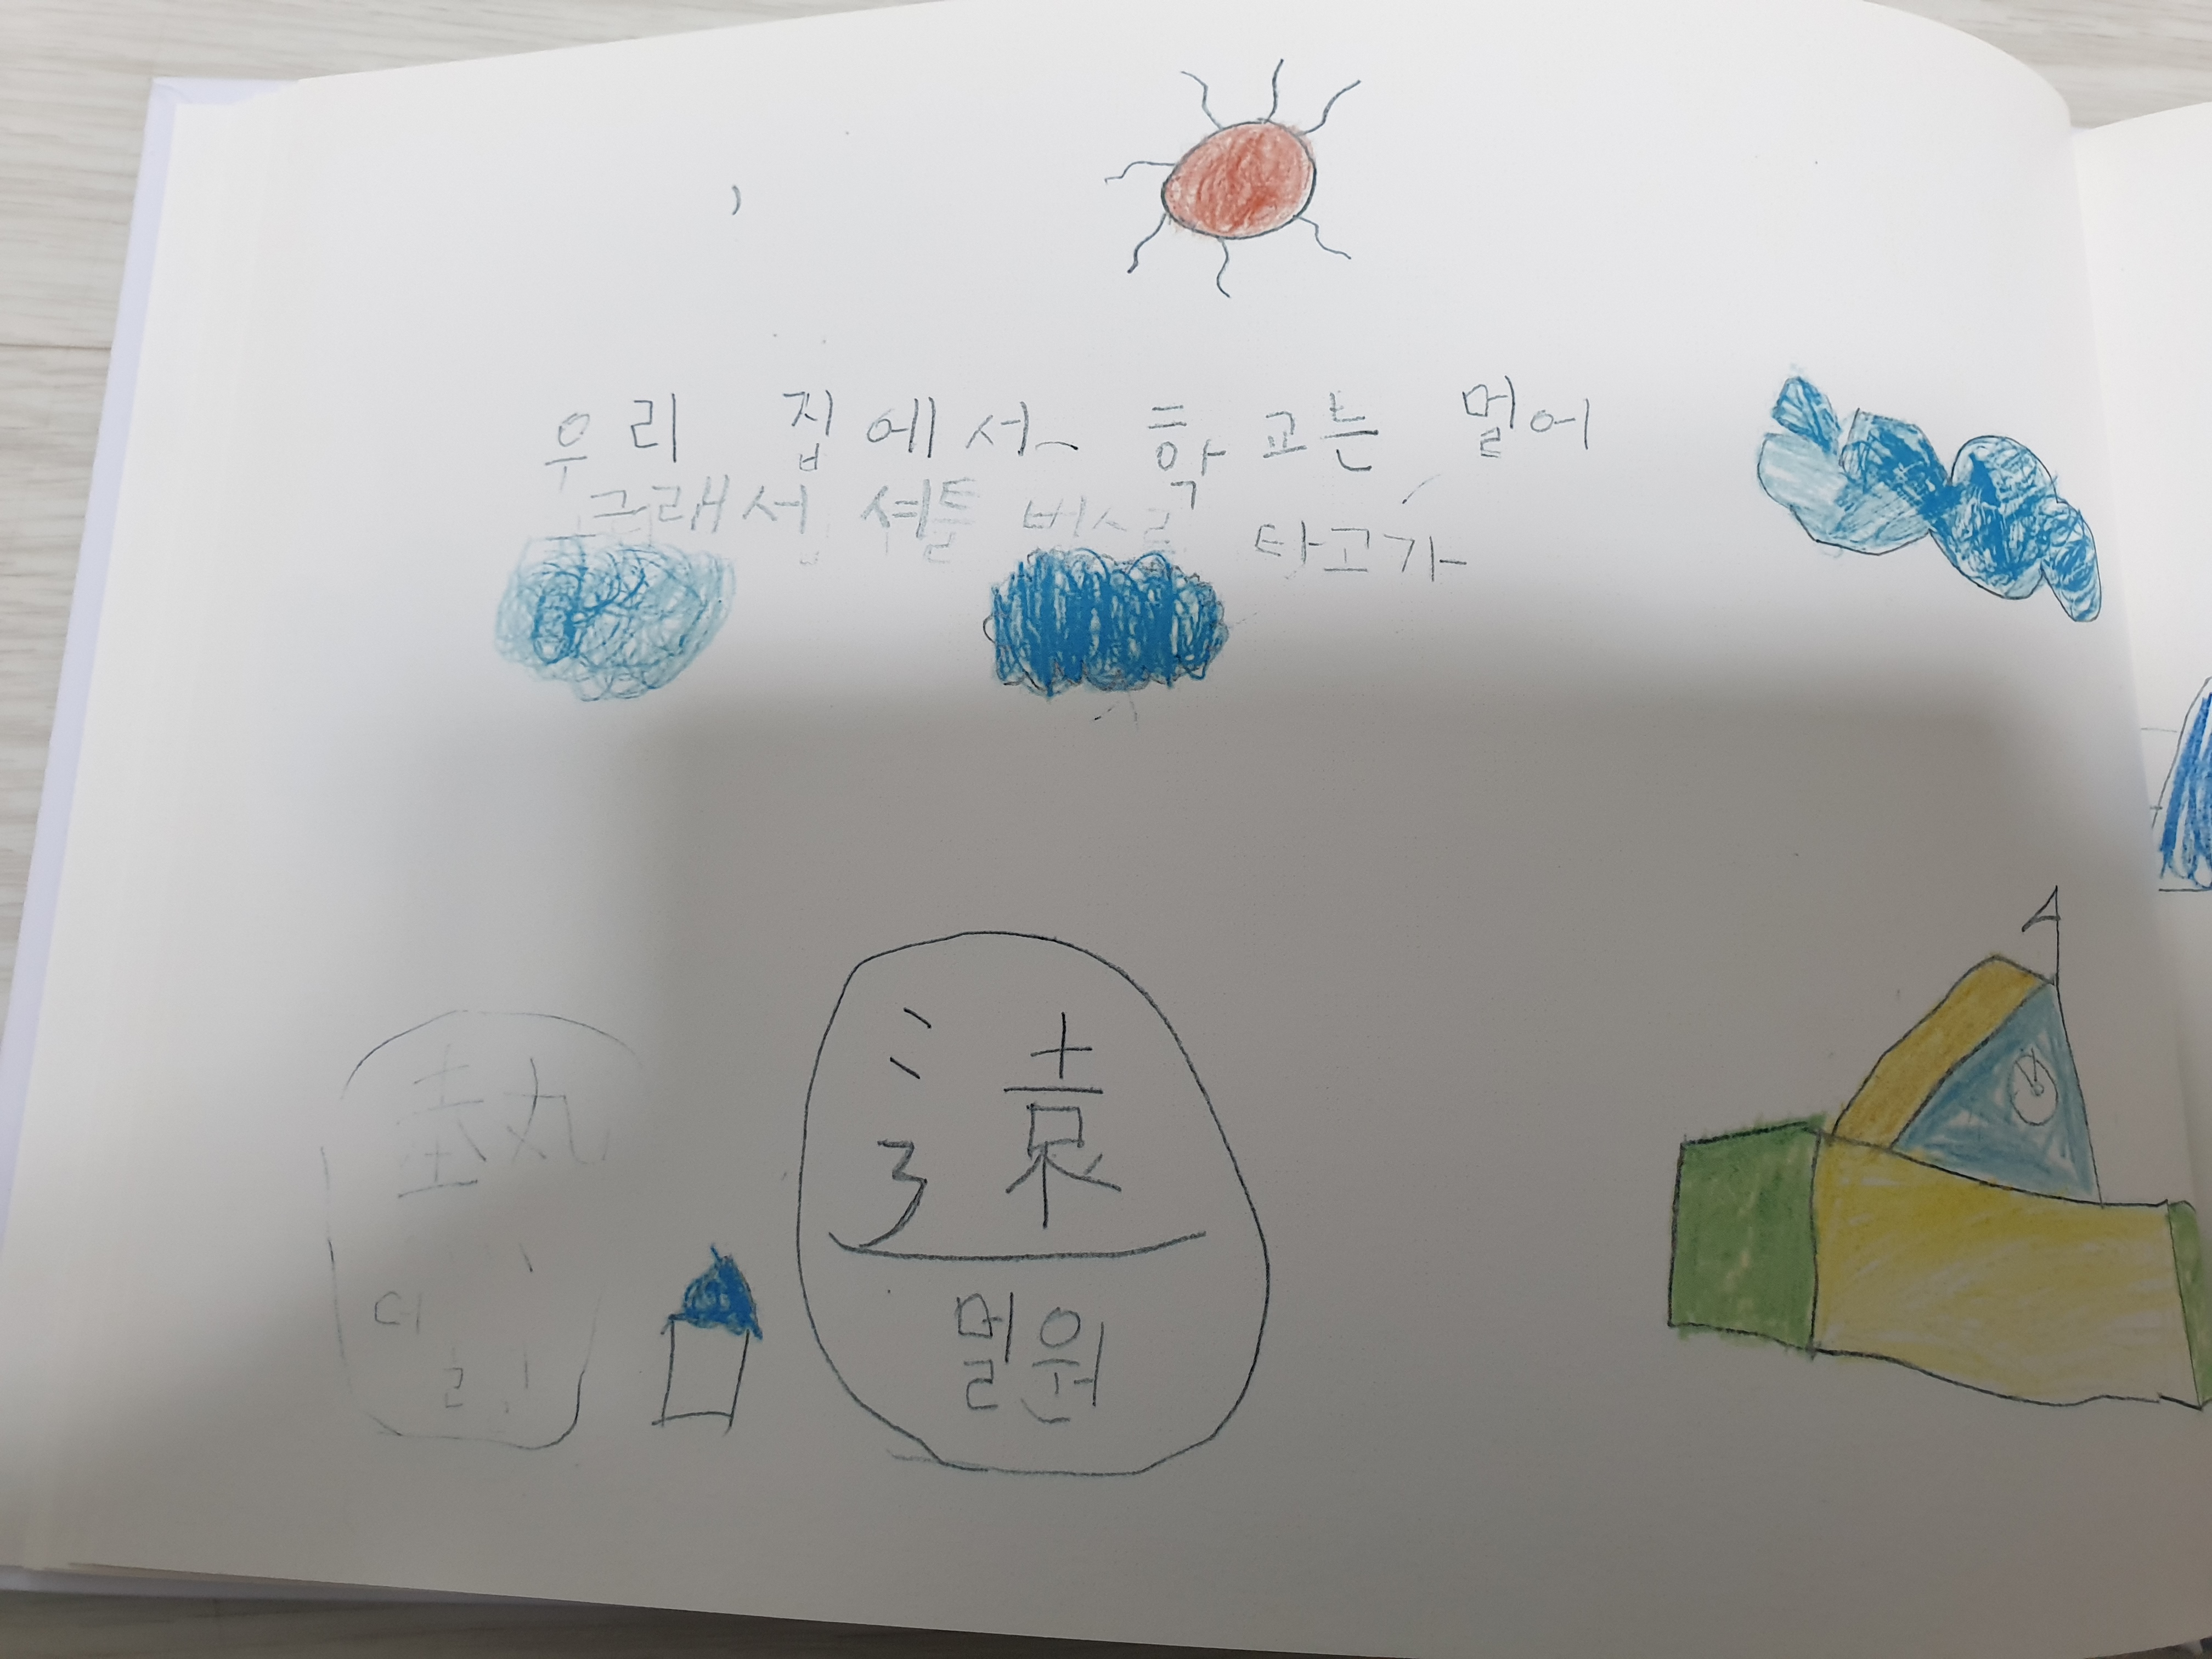 우리 집에서 학교는 멀어
그래서 셔틀 버스를 타고가
遠
멀 원